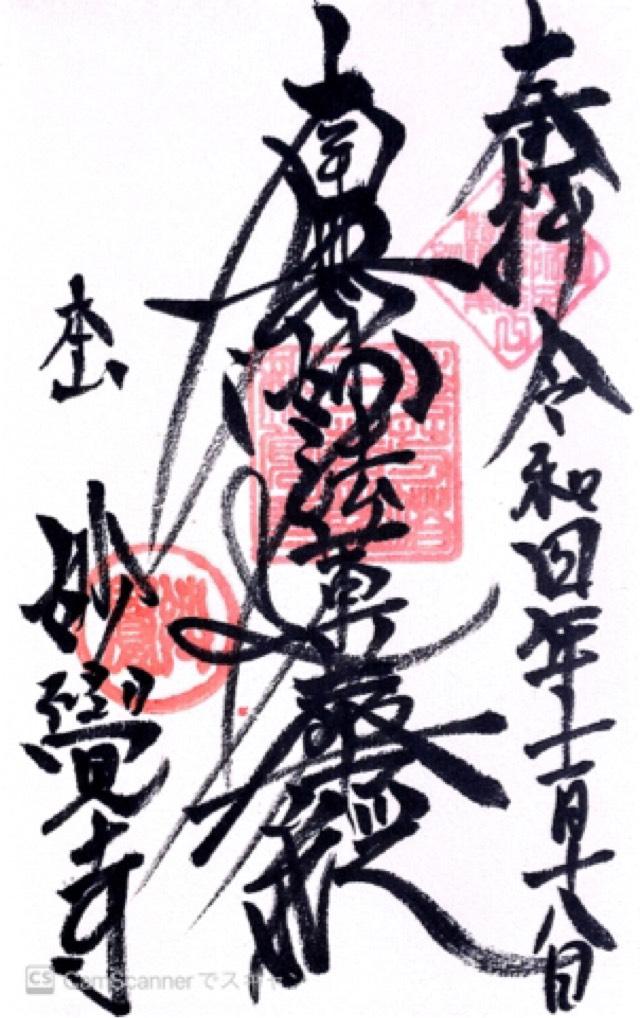 奉拝 令和四年十一月十八日
南無妙法蓮華經
本山 妙覺寺
CS CamScanner でスキャ